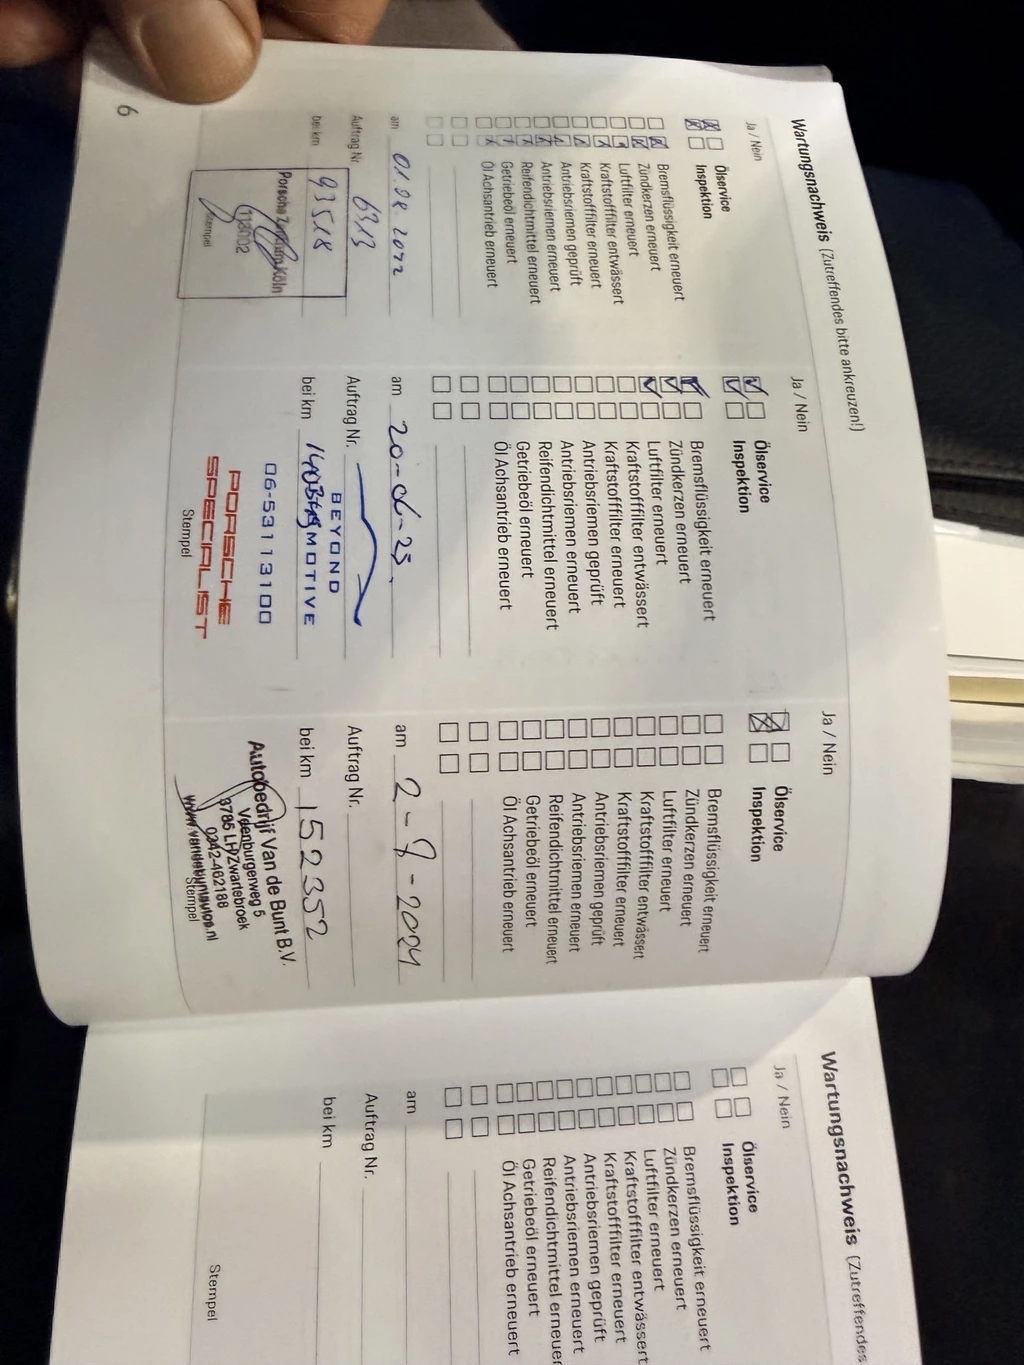 Wartungsnachweis (Zutreffendes bitte ankreuzen!)
Ja / Nein
Ölservice
Inspektion
Bremsflüssigkeit erneuert
Zündkerzen erneuert
Luftfilter erneuert
Kraftstofffilter entwässert
Kraftstofffilter erneuert
Antriebsriemen geprüft
Antriebsriemen erneuert
Reifendichtmittel erneuert
Getriebeöl erneuert
Öl Achsantrieb erneuert
am
Auftrag Nr. 6313
bei km 93518
Porsche Zentrum Köln
Stempel
6
Ja / Nein
Ölservice
Inspektion
Bremsflüssigkeit erneuert
Zündkerzen erneuert
Luftfilter erneuert
Kraftstofffilter entwässert
Kraftstofffilter erneuert
Antriebsriemen geprüft
Antriebsriemen erneuert
Reifendichtmittel erneuert
Getriebeöl erneuert
Öl Achsantrieb erneuert
am 20-06-23
Auftrag Nr.
BEYOND
bei km MOTIVE
06-53113100
PORSCHE
SPECIALIST
Stempel
Ja / Nein
Ölservice
Inspektion
Bremsflüssigkeit erneuert
Zündkerzen erneuert
Luftfilter erneuert
Kraftstofffilter entwässert
Kraftstofffilter erneuert
Antriebsriemen geprüft
Antriebsriemen erneuert
Reifendichtmittel erneuert
Getriebeöl erneuert
Öl Achsantrieb erneuert
am 2-9-2024
Auftrag Nr.
bei km 152352
Autobedrijf Van de Bunt B.V.
Valenburgerweg 5
3785 LH Zwartebroek
0342-462188
Stempel
Wartungsnachweis (Zutreffendes
Ja / Nein
Ölservice
Inspektion
Bremsflüssigkeit erneuert
Zündkerzen erneuert
Luftfilter erneuert
Kraftstofffilter entwässert
Kraftstofffilter erneuert
Antriebsriemen geprüft
Antriebsriemen erneuert
Reifendichtmittel erneuer
Getriebeöl erneuert
Öl Achsantrieb erneuert
am
Auftrag Nr.
bei km
Stempel